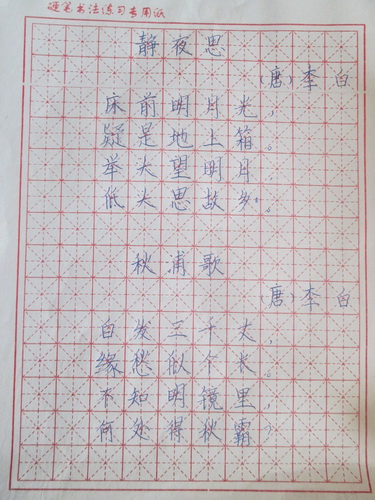 硬笔书法练习专用纸
静夜思
(唐)李白
床前明月光,
疑是地上箱。
举头望明月,
低头思故乡。
秋浦歌
(唐)李白
白发三千丈,
缘愁似个长。
不知明镜里,
何处得秋霜?